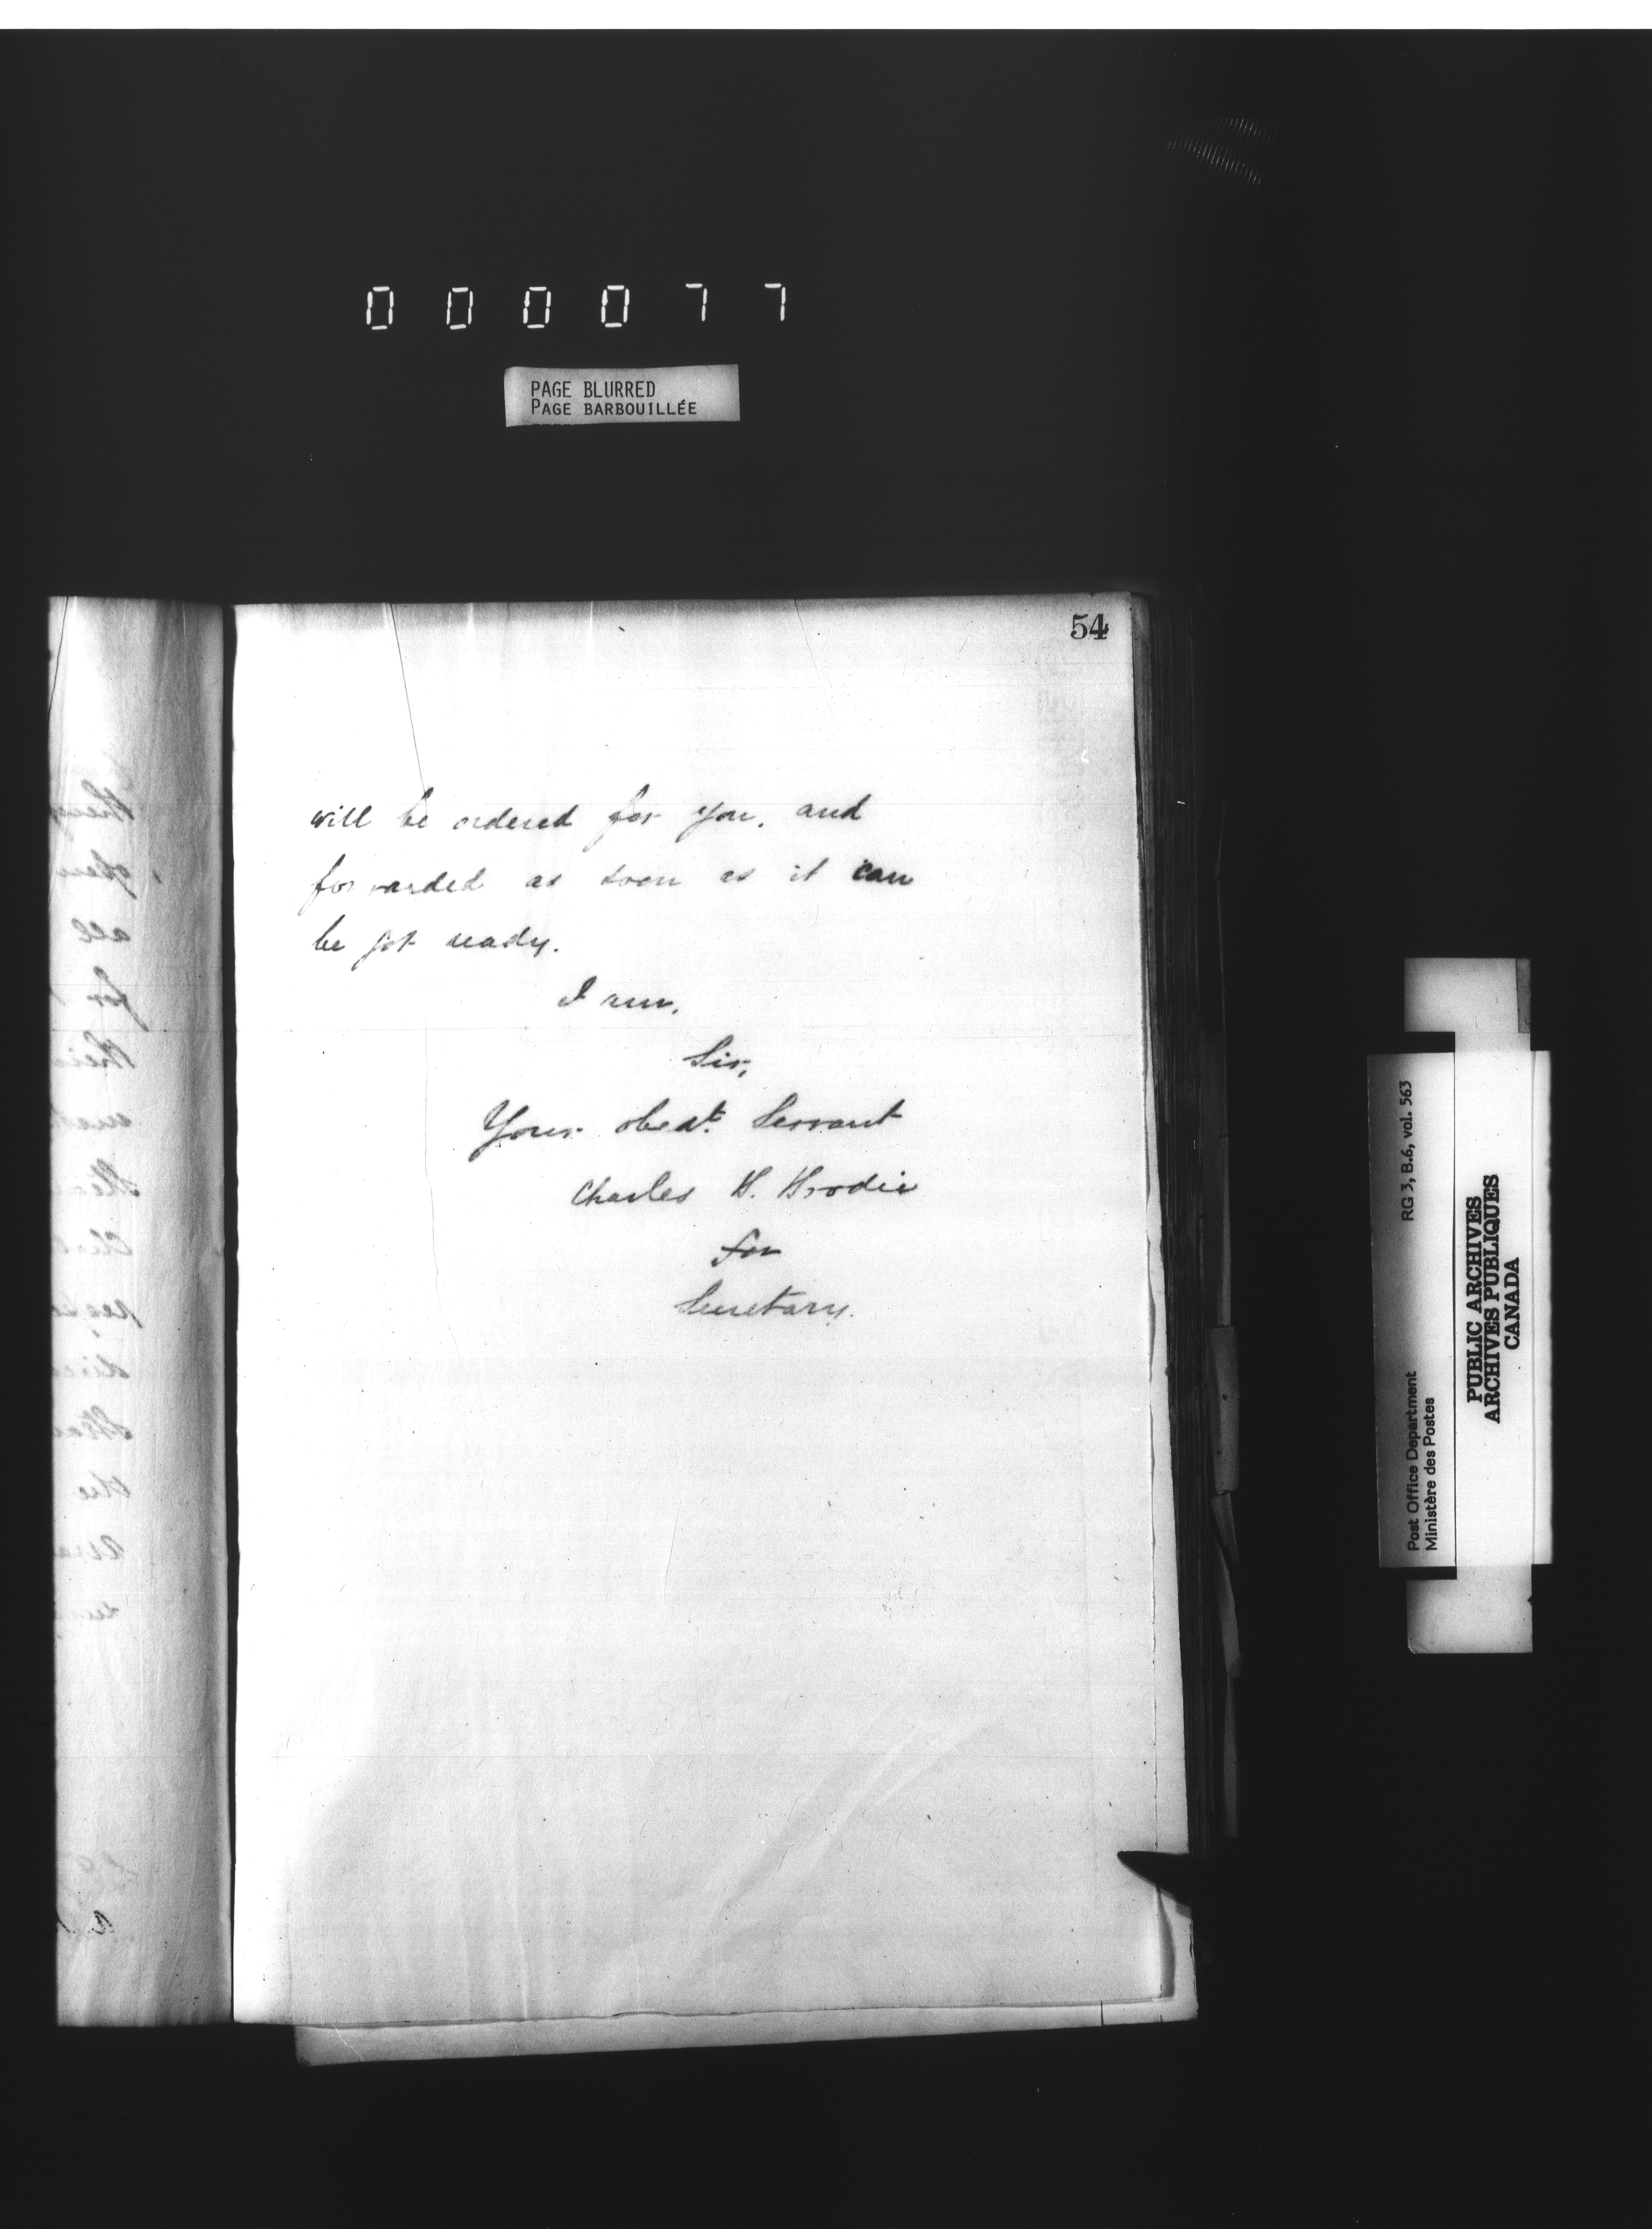 000077
PAGE BLURRED
PAGE BARBOUILLÉE
54
will be ordered for you, and
forwarded as soon as it can
be got ready.
I am,
Sir,
Your obedt. Servant
Charles H. Brodie
for
Secretary.
RG 3, B.6, vol. 563
Post Office Department
Ministère des Postes
PUBLIC ARCHIVES
ARCHIVES PUBLIQUES
CANADA